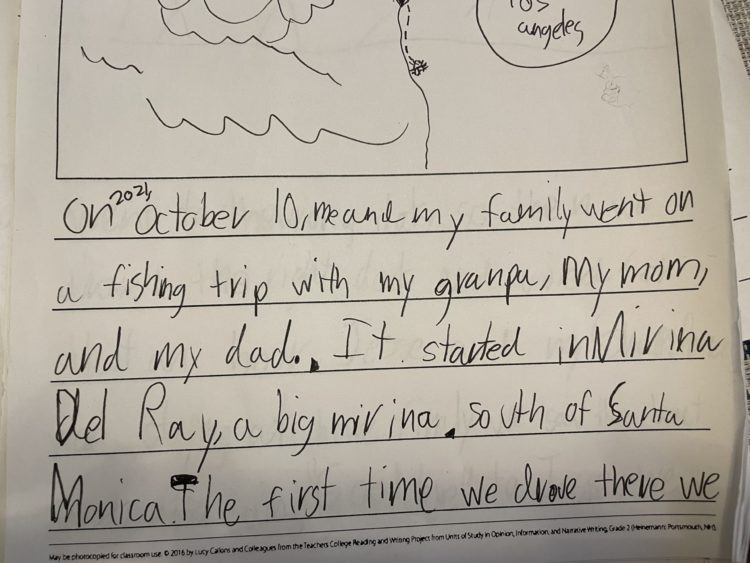 Los
angeles
On 2021, October 10, me and my family went on
a fishing trip with my granpa, My mom,
and my dad. It started in Mirina
Del Ray, a big mirina. south of Santa
Monica. The first time we drove there we
May be photocopied for classroom use. © 2016 by Lucy Calkins and Colleagues from the Teachers College Reading and Writing Project from Units of Study in Opinion, Information, and Narrative Writing, Grade 2 (Heinemann: Portsmouth, NH).